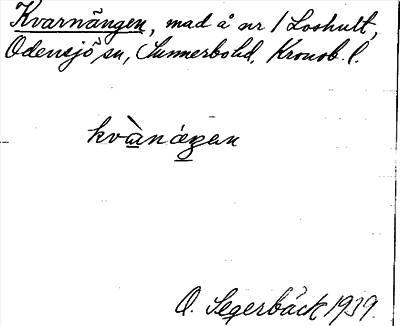 Kvarnängen, mad å nr 1 Loshult,
Odensjö sn, Sunnerbo hd, Kronob. l.
kvànǽgen
O. Segerbäck 1939.